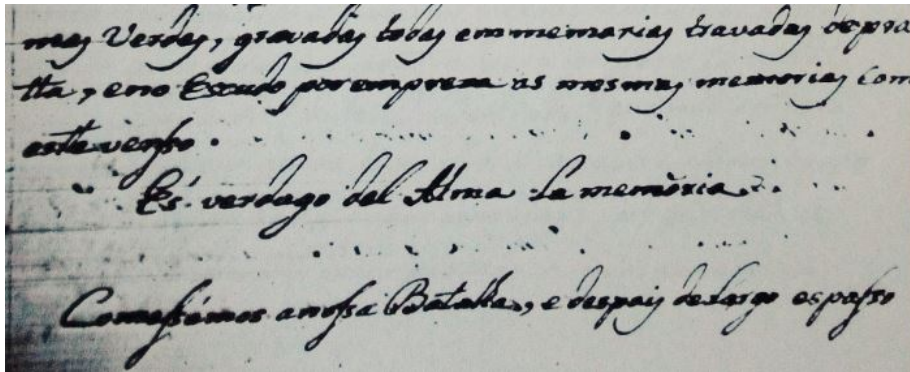 mas Verdes, gravadas todas em memarias travadas de pra
tta, e no Escudo por empreza as mesmas memorias com
este verso.
És verdugo del Alma la memória.
Comessémos a nossa Batalha, e despois de largo espasso